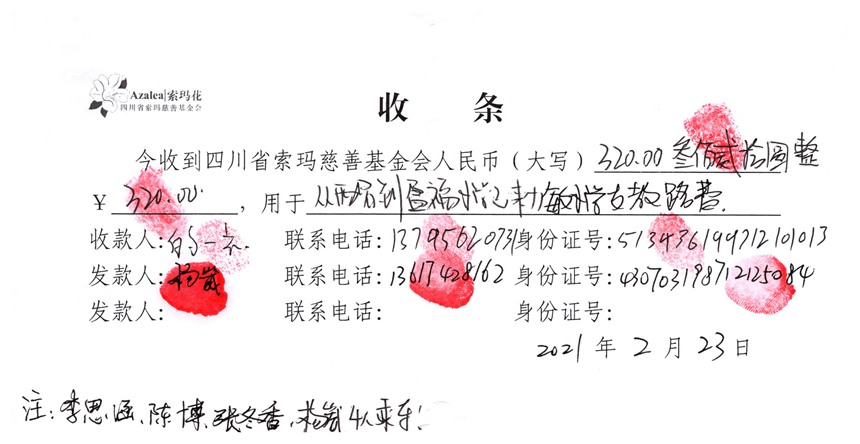 Azalea|索玛花
四川省索玛慈善基金会
收 条
今收到四川省索玛慈善基金会人民币（大写）320.00 叁佰贰拾圆整
￥320.00，用于从西昌到 支教路费.
收款人: 联系电话:13795620731身份证号:513436199712101013
发款人:杨岚 联系电话:13617428162 身份证号:430703198712125084
发款人: 联系电话: 身份证号:
2021 年 2 月 23 日
注:李思涵、陈博、张冬香、杨岚 4人乘车!